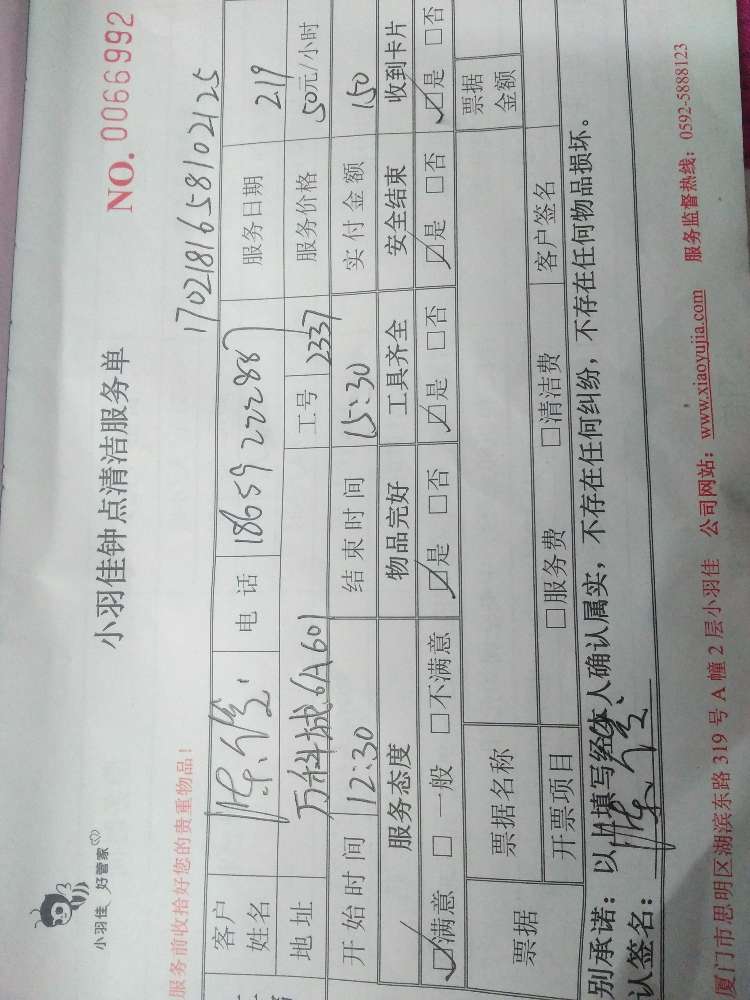 小羽佳 好管家
小羽佳钟点清洁服务单
NO. 0066992
服务前收拾好您的贵重物品！
1702181658102125
客户姓名 电话 18659222887 服务日期 219
地址 万科城6A601 工号 2337 服务价格 50元/小时
开始时间 12:30 结束时间 15:30 实付金额 150
服务态度 物品完好 工具齐全 安全结束 收到卡片
☑满意 □一般 □不满意 ☑是 □否 ☑是 □否 ☑是 □否 ☑是 □否
票据 票据名称 票据金额
开票项目 □服务费 □清洁费 客户签名
别承诺：以上填写经本人确认属实，不存在任何纠纷，不存在任何物品损坏。
认签名：
厦门市思明区湖滨东路 319 号 A 幢 2 层小羽佳 公司网站：www.xiaoyujia.com 服务监督热线：0592-5888123